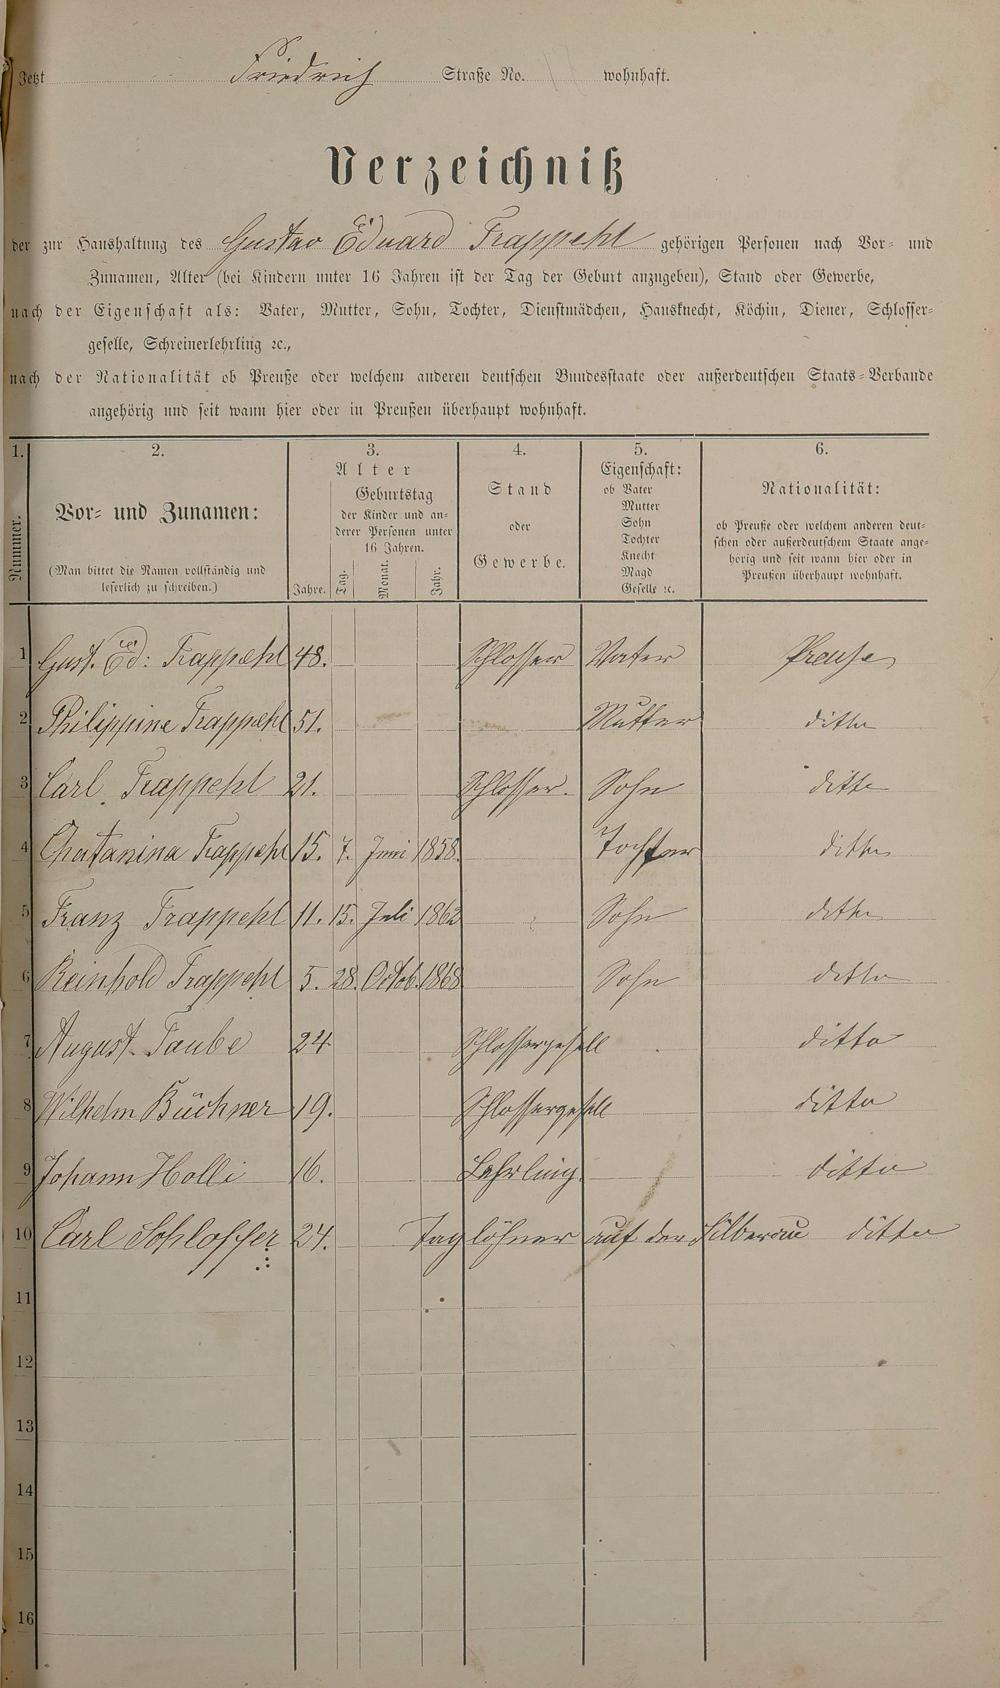 Jetzt Friedrich Straße No. wohnhaft.
Verzeichniß
der zur Haushaltung des Gustav Eduard Trappehl gehörigen Personen nach Vor- und
Zunamen, Alter (bei Kindern unter 16 Jahren ist der Tag der Geburt anzugeben), Stand oder Gewerbe,
nach der Eigenschaft als: Vater, Mutter, Sohn, Tochter, Dienstmädchen, Hausknecht, Köchin, Diener, Schlosser-
geselle, Schreinerlehrling ꝛc.,
nach der Nationalität ob Preuße oder welchem anderen deutschen Bundesstaate oder außerdeutschen Staats-Verbande
angehörig und seit wann hier oder in Preußen überhaupt wohnhaft.
1. 2. 3. 4. 5. 6.
Nummer.
Vor- und Zunamen:
(Man bittet die Namen vollständig und
leserlich zu schreiben.)
Alter
Jahre.
Geburtstag
der Kinder und an-
derer Personen unter
16 Jahren.
Tag. Monat. Jahr.
Stand
oder
Gewerbe.
Eigenschaft:
ob Vater
Mutter
Sohn
Tochter
Knecht
Magd
Geselle ꝛc.
Nationalität:
ob Preuße oder welchem anderen deut-
schen oder außerdeutschem Staate ange-
hörig und seit wann hier oder in
Preußen überhaupt wohnhaft.
1 Gust. Ed: Trappehl 48. Schlosser Vater Preuße
2 Philippine Trappehl 51. Mutter ditto
3 Carl Trappehl 21. Schlosser. Sohn ditto
4 Chatarina Trappehl 15. 7. Juni 1858. Tochter ditto
5 Franz Trappehl 11. 15. Juli 1862 Sohn ditto
6 Reinhold Trappehl 5. 28. Octob. 1868 Sohn ditto
7 August Taube 24 Schlossergesell ditto
8 Wilhelm Büchner 19. Schlossergesell ditto
9 Johann Holli 16. Lehrling. ditto
10 Carl Schlosser 24. Taglöhner auf der Silberau ditto
11
12
13
14
15
16